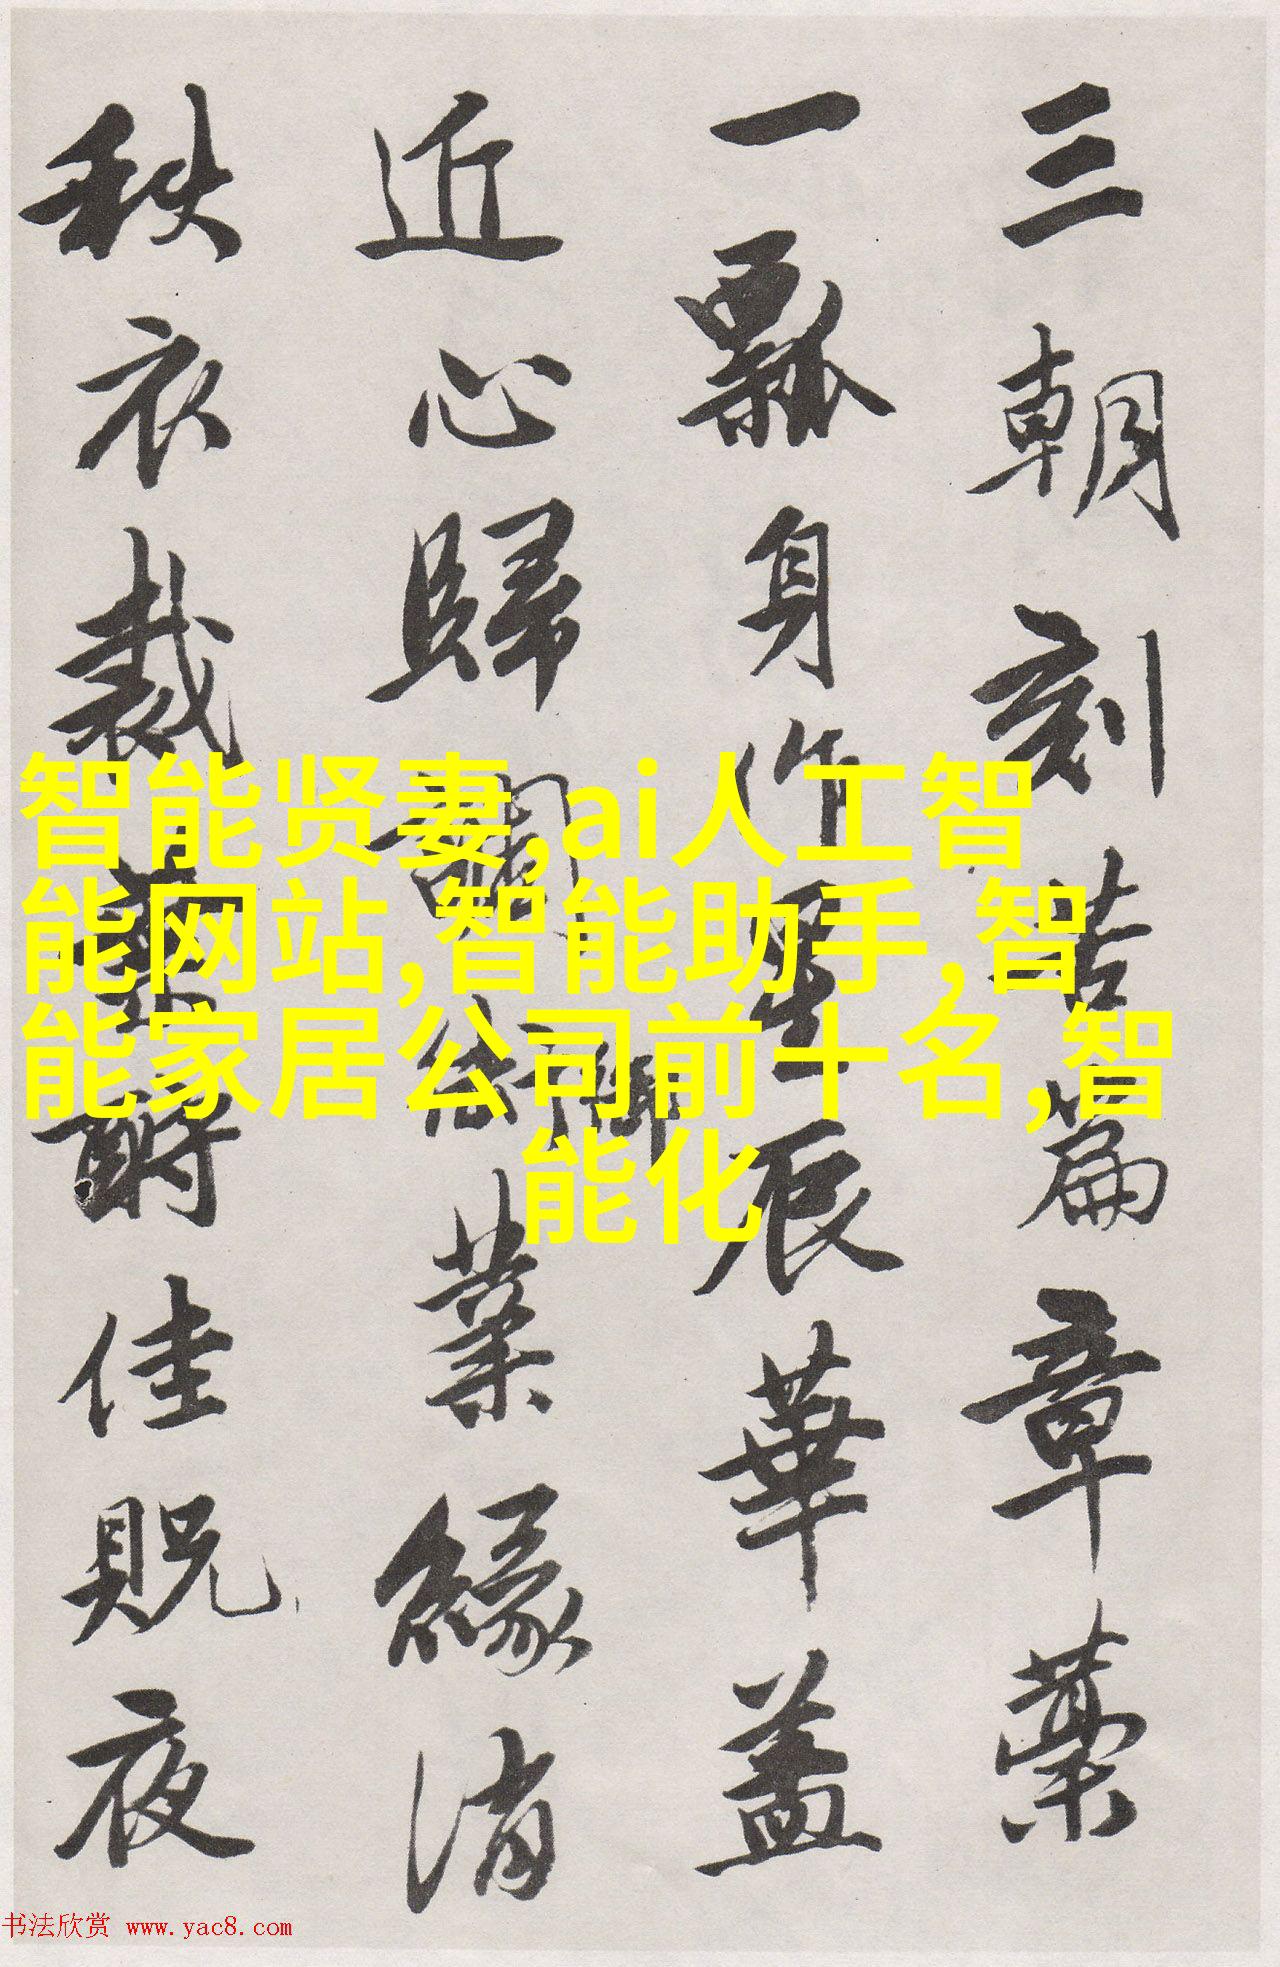 三朝刻苦篇章藁
一瓢身作星辰華蓋
近心歸闢衙業緣消
秩衣裁製酹佳貺夜
智能贤妻,ai人工智
能网站,智能助手,智
能家居公司前十名,智
能化
书法欣赏 www.yac8.com